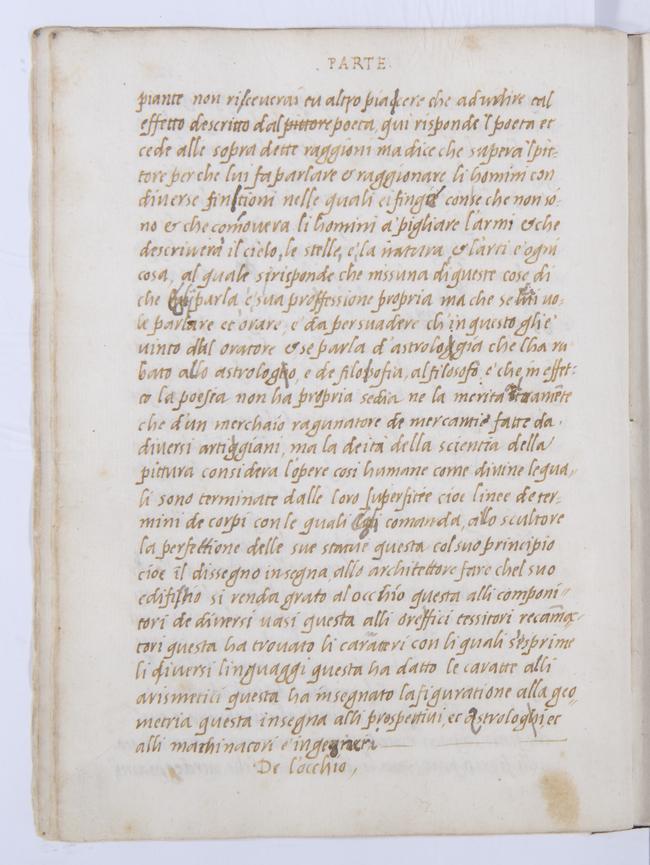 PARTE
piante non risceverai tu altro piaccere che ad udire tal
effetto descritto dal pittore poeta, qui risponde 'l poeta et
cede alle sopra dette raggioni ma dice che supera 'l pit-
tore per che lui fa parlare & raggionare li homini con
diverse fintioni nelle quali ei finge conse che non so-
no & che comovera li homini a' pigliare l'armi & che
descriverà il cielo, le stelle, e' la natura, & l'arti e' ogni
cosa, al quale si risponde che nissuna di queste cose di
che parla e' sua proffessione propria ma che se vo-
le parlare et orare, e' da persuadere ch in questo gli e'
vinto dal oratore & se parla d'astrologgia che l'ha ru
bato allo astrologo, e de filosofia, al filosofo e' che in effet-
to la poesia non ha propria sedia ne la merita altramente
che d'un merchaio ragunatore de mercantie fatte da
diversi artiggiani, ma la deità della scientia della
pittura considera l'opere cosi humane come divine le qua,,
li sono terminate dalle loro superfitie cioe linee de ter-
mini de corpi con le quali comanda, allo scultore
la perfettione delle sue statue questa col suo principio
cioe il dissegno insegna, allo architettore fare chel suo
edifitio si renda grato al occhio questa alli componi,,
tori de diversi vasi questa alli oreffici tessitori recama-
tori questa ha trovato li caratteri con li quali s'esprime
li diversi linguaggi questa ha datto le caratte alli
arismetici questa ha insegnato la figuratione alla geo-
metria questa insegna alli prospettivi, et astrologhi et
alli machinatori e ingegnieri
De l'occhio,